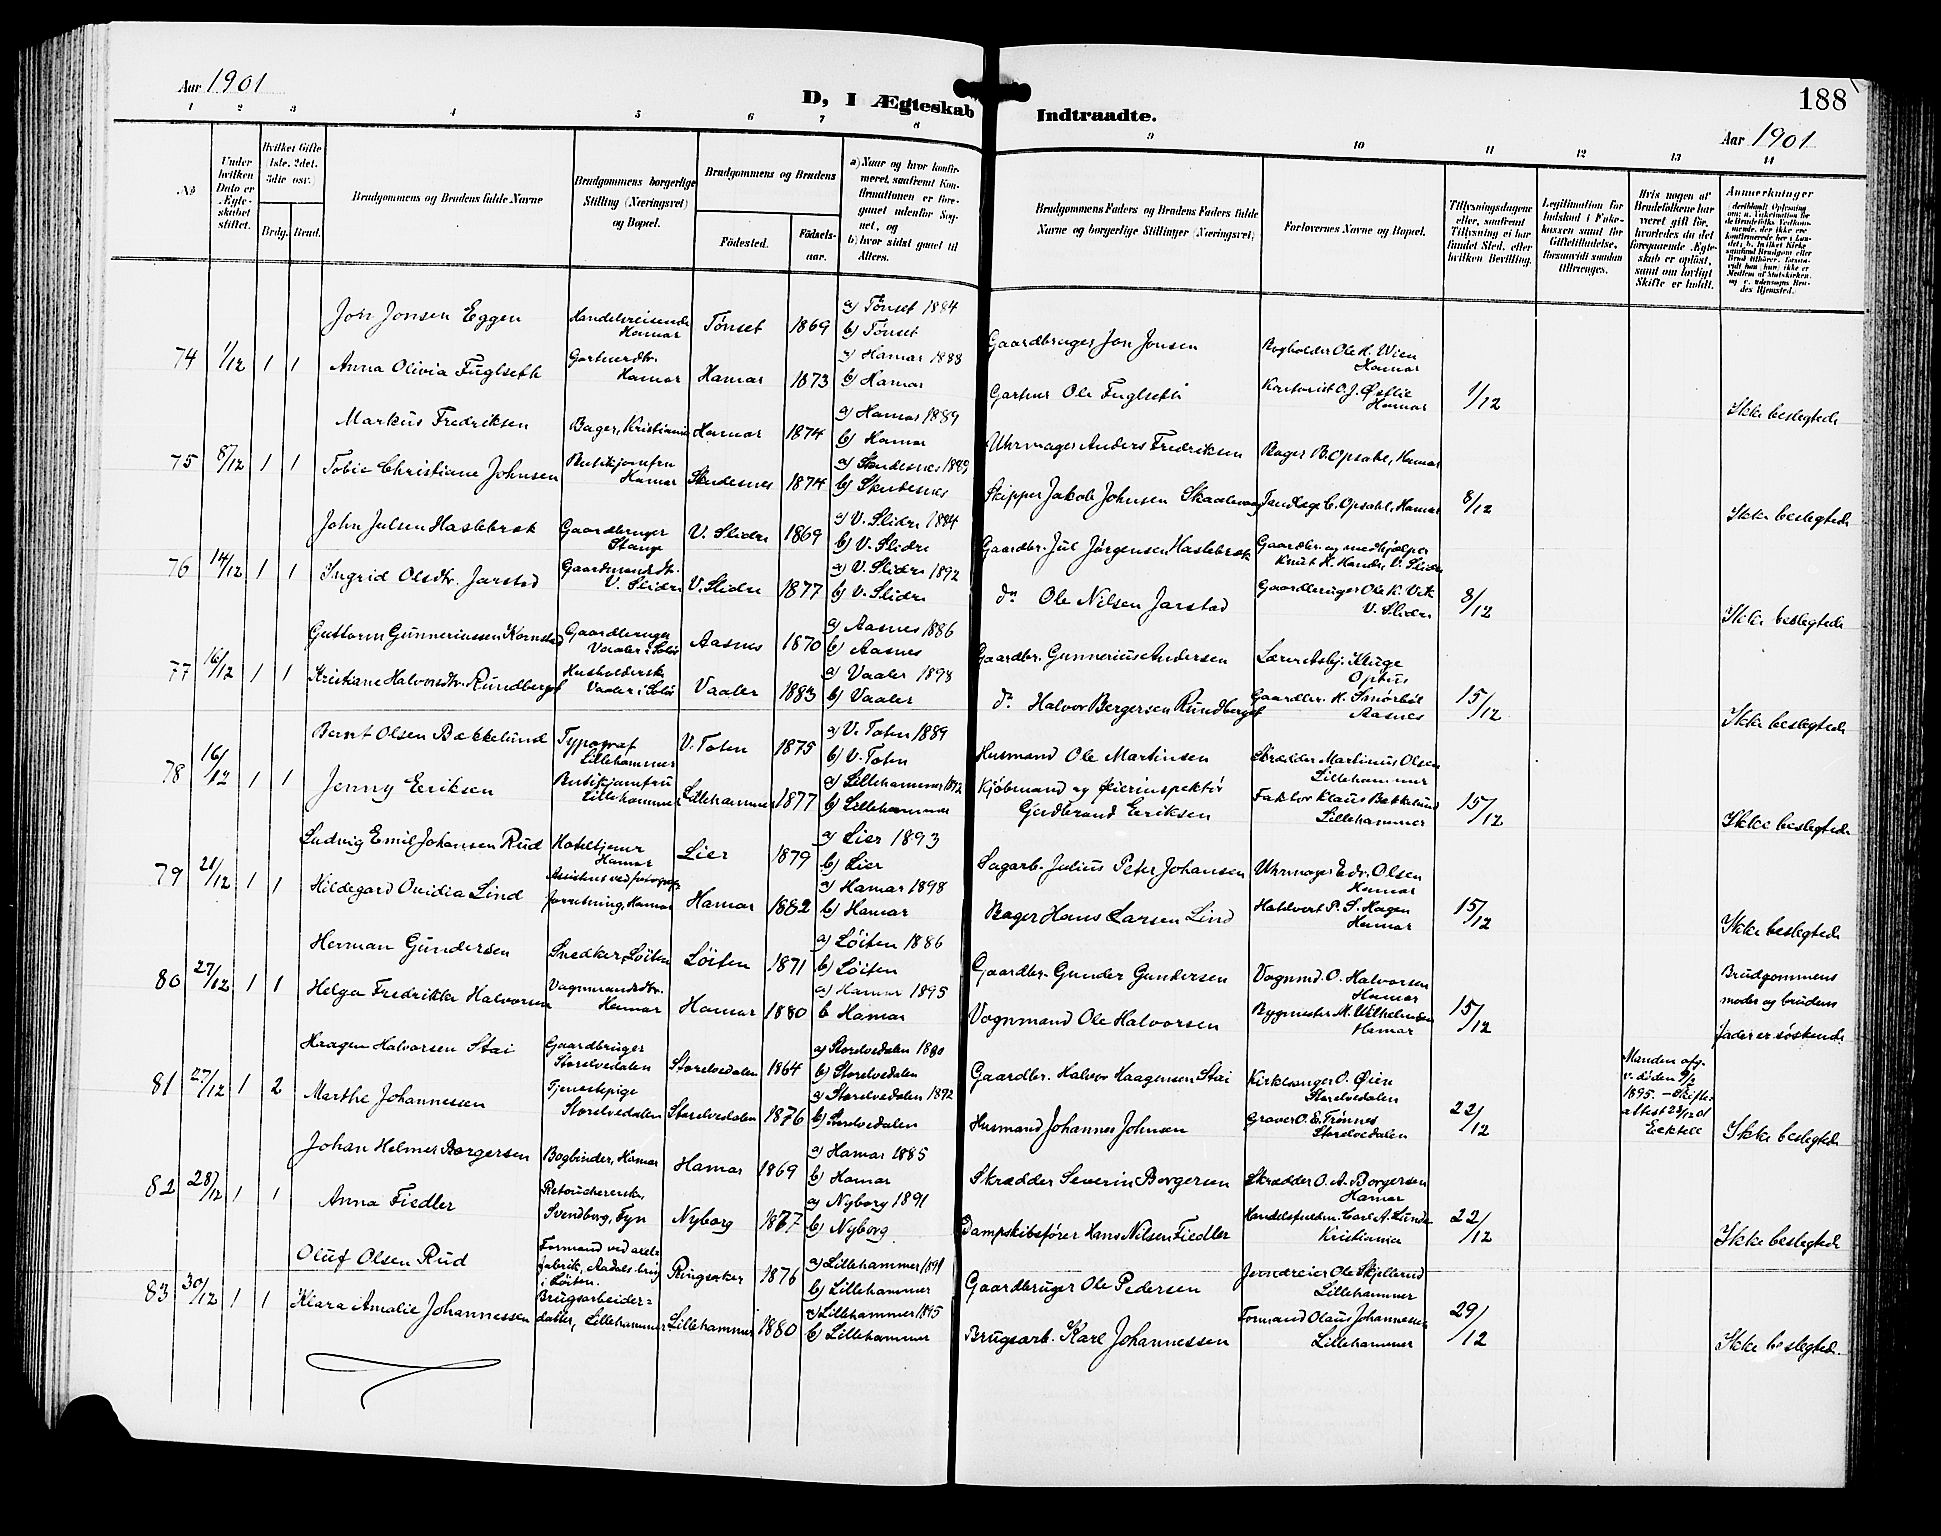 Aar 1901
D, I Ægteskab Indtraadte.
188
Aar 1901
1 2 3 4 5 6 7 8 9 10 11 12 13 14
No
Under hvilken Dato er Ægteskabet stiftet.
Hvilket Gifte (1ste. 2det. 3die osv.)
Brdg. Brud.
Brudgommens og Brudens fulde Navne
Brudgommens borgerlige Stilling (Næringsvei) og Bopæl.
Brudgommens og Brudens
Födested.
Födselsaar.
a) Naar og hvor konfirmeret, saafremt Konfirmationen er foregaaet udenfor Sognet, og
b) hvor sidst gaaet til Alters.
Brudgommens Faders og Brudens Faders fulde Navne og borgerlige Stillinger (Næringsvei)
Forlovernes Navne og Bopæl.
Tillysningsdagene eller, saafremt Tillysning ei har fundet Sted, efter hvilken Bevilling.
Legitimation for Indskud i Enkekassen samt for Giftetilladelse, forsaavidt saadan tiltrænges.
Hvis nogen af Brudefolkene har været gift för, hvorledes da det foregaaende Ægteskab er oplöst, samt om lovligt Skifte er holdt.
Anmerkninger
74 1/12 1 1
Jon Jonsen Eggen Handelsreisende Hamar Tønset 1869 a) Tønset 1884 b) Tønset Gaardbruger Jon Jonsen Bogholder Ole H. Wien Hamar
Anna Olivia Fuglseth Gartnerdtr. Hamar Hamar 1873 a) Hamar 1888 b) Hamar Gartner Ole Fuglseth Kontorist O. J. Østlie Hamar 1/12 Ikke beslegtede
75 8/12 1 1
Markus Fredriksen Bager, Kristiania Hamar 1874 a) Hamar 1889 b) Hamar Uhrmager Anders Fredriksen Bager B. Opsahl, Hamar
Tobie Christiane Johnsen Butikjomfru Hamar Skudesnes 1874 a) Skudesnes 1889 b) Skudesnes Skipper Jakob Johnsen Skaalevag Tandlæge C. Opsahl, Hamar 8/12 Ikke beslegtede
76 14/12 1 1
John Julsen Haslebrek Gaardbruger Stange V. Slidre 1869 a) V. Slidre 1884 b) V. Slidre Gaardbr. Jul Jørgensen Haslebrek Gaardbr. og medhjælper Knut K. V. Slidre
Ingrid Olsdtr. Jarstad Gaardmandsdtr. V. Slidre V. Slidre 1877 a) V. Slidre 1892 b) V. Slidre do Ole Nilsen Jarstad Gaardbruger Ole K. Vik V. Slidre 8/12 Ikke beslegtede
77 16/12 1 1
Guttorm Gunneriussen Kornstad Gaardbruger Vaaler i Solør Aasnes 1870 a) Aasnes 1886 b) Aasnes Gaardbr. Gunnerius Andersen Lærer Asbj. Kluge
Kristiane Halvorsdtr. Rundberget Husholderske Vaaler i Solør Vaaler 1883 a) Vaaler 1898 b) Vaaler do Halvor Bergersen Rundberget Gaardbr. H. Smørbøl Aasnes 15/12 Ikke beslegtede
78 16/12 1 1
Bernt Olsen Bækkelund Typograf Lillehammer V. Toten 1875 a) V. Toten 1889 b) V. Toten Husmand Ole Martinsen Skrædder Martinius Olsen Lillehammer
Jenny Eriksen Butikjomfru Lillehammer Lillehammer 1877 a) Lillehammer 1892 b) Lillehammer Kjøbmand og Øierinspektør Gudbrand Eriksen Faktor Klaus Bækkelund Lillehammer 15/12 Ikke beslegtede
79 21/12 1 1
Ludvig Emil Johansen Rud Hoteltjener Hamar Lier 1879 a) Lier 1893 b) Lier Sagarb. Julius Peter Johansen Uhrmager Edv. Olsen Hamar
Hildegard Ovidia Lind Assistent ved fotograf forretning, Hamar Hamar 1882 a) Hamar 1898 b) Hamar Bager Hans Larsen Lind Hotelvert P. S. Hagen Hamar 15/12 Ikke beslegtede
80 27/12 1 1
Herman Gundersen Snedker, Løiten Løiten 1871 a) Løiten 1886 b) Løiten Gaardbr. Gunder Gundersen Vognmd. O. Halvorsen Hamar Brudgommens
Helga Fredrikke Halvorsen Vognmandsdtr. Hamar Hamar 1880 a) Hamar 1895 b Hamar Vognmand Ole Halvorsen Bygmester M. Wilhelmsen Hamar 15/12 moder og brudens fader er søskende
81 27/12 1 2
Haagen Halvorsen Stai Gaardbruger Storelvedalen Storelvedalen 1864 a) Storelvedalen 1880 b) Storelvedalen Gaardbr. Halvor Haagensen Stai Kirkesanger O. Øien Storelvedalen Manden afg. v. døden 9/2 1895. – Skifteattest 23/12 01
Marthe Johannessen Tjenestepige Storelvedalen Storelvedalen 1876 a) Storelvedalen 1892 b) Storelvedalen Husmand Johannes Johnsen Graver O. E. Trønnes Storelvedalen 22/12 Ikke beslegtede
82 28/12 1 1
Johan Helmer Borgersen Bogbinder, Hamar Hamar 1869 a) Hamar 1885 b) Hamar Skrædder Severin Borgersen Skrædder O. A. Borgersen Hamar
Anna Fiedler Retoucherersk, Svendborg, Fyn Nyborg 1877 a) Nyborg 1891 b) Nyborg Dampskibsfører Hans Nilsen Fiedler Handelsfuldm. Carl A. Lunde Kristiania 22/12 Ikke beslegtede
83 30/12 1 1
Oluf Olsen Rud Formand ved fabrik, Aadals brug i Løiten. Ringsaker 1876 a) Lillehammer 1891 b) Lillehammer Gaardbruger Ole Pedersen Ole Skjellerud Lillehammer
Klara Amalie Johannessen Brugsarbeiderdatter, Lillehammer Lillehammer 1880 a) Lillehammer 1895 b) Lillehammer Brugsarb. Karl Johannessen Formand Olaus Johannessen Lillehammer 29/12 Ikke beslegtede.